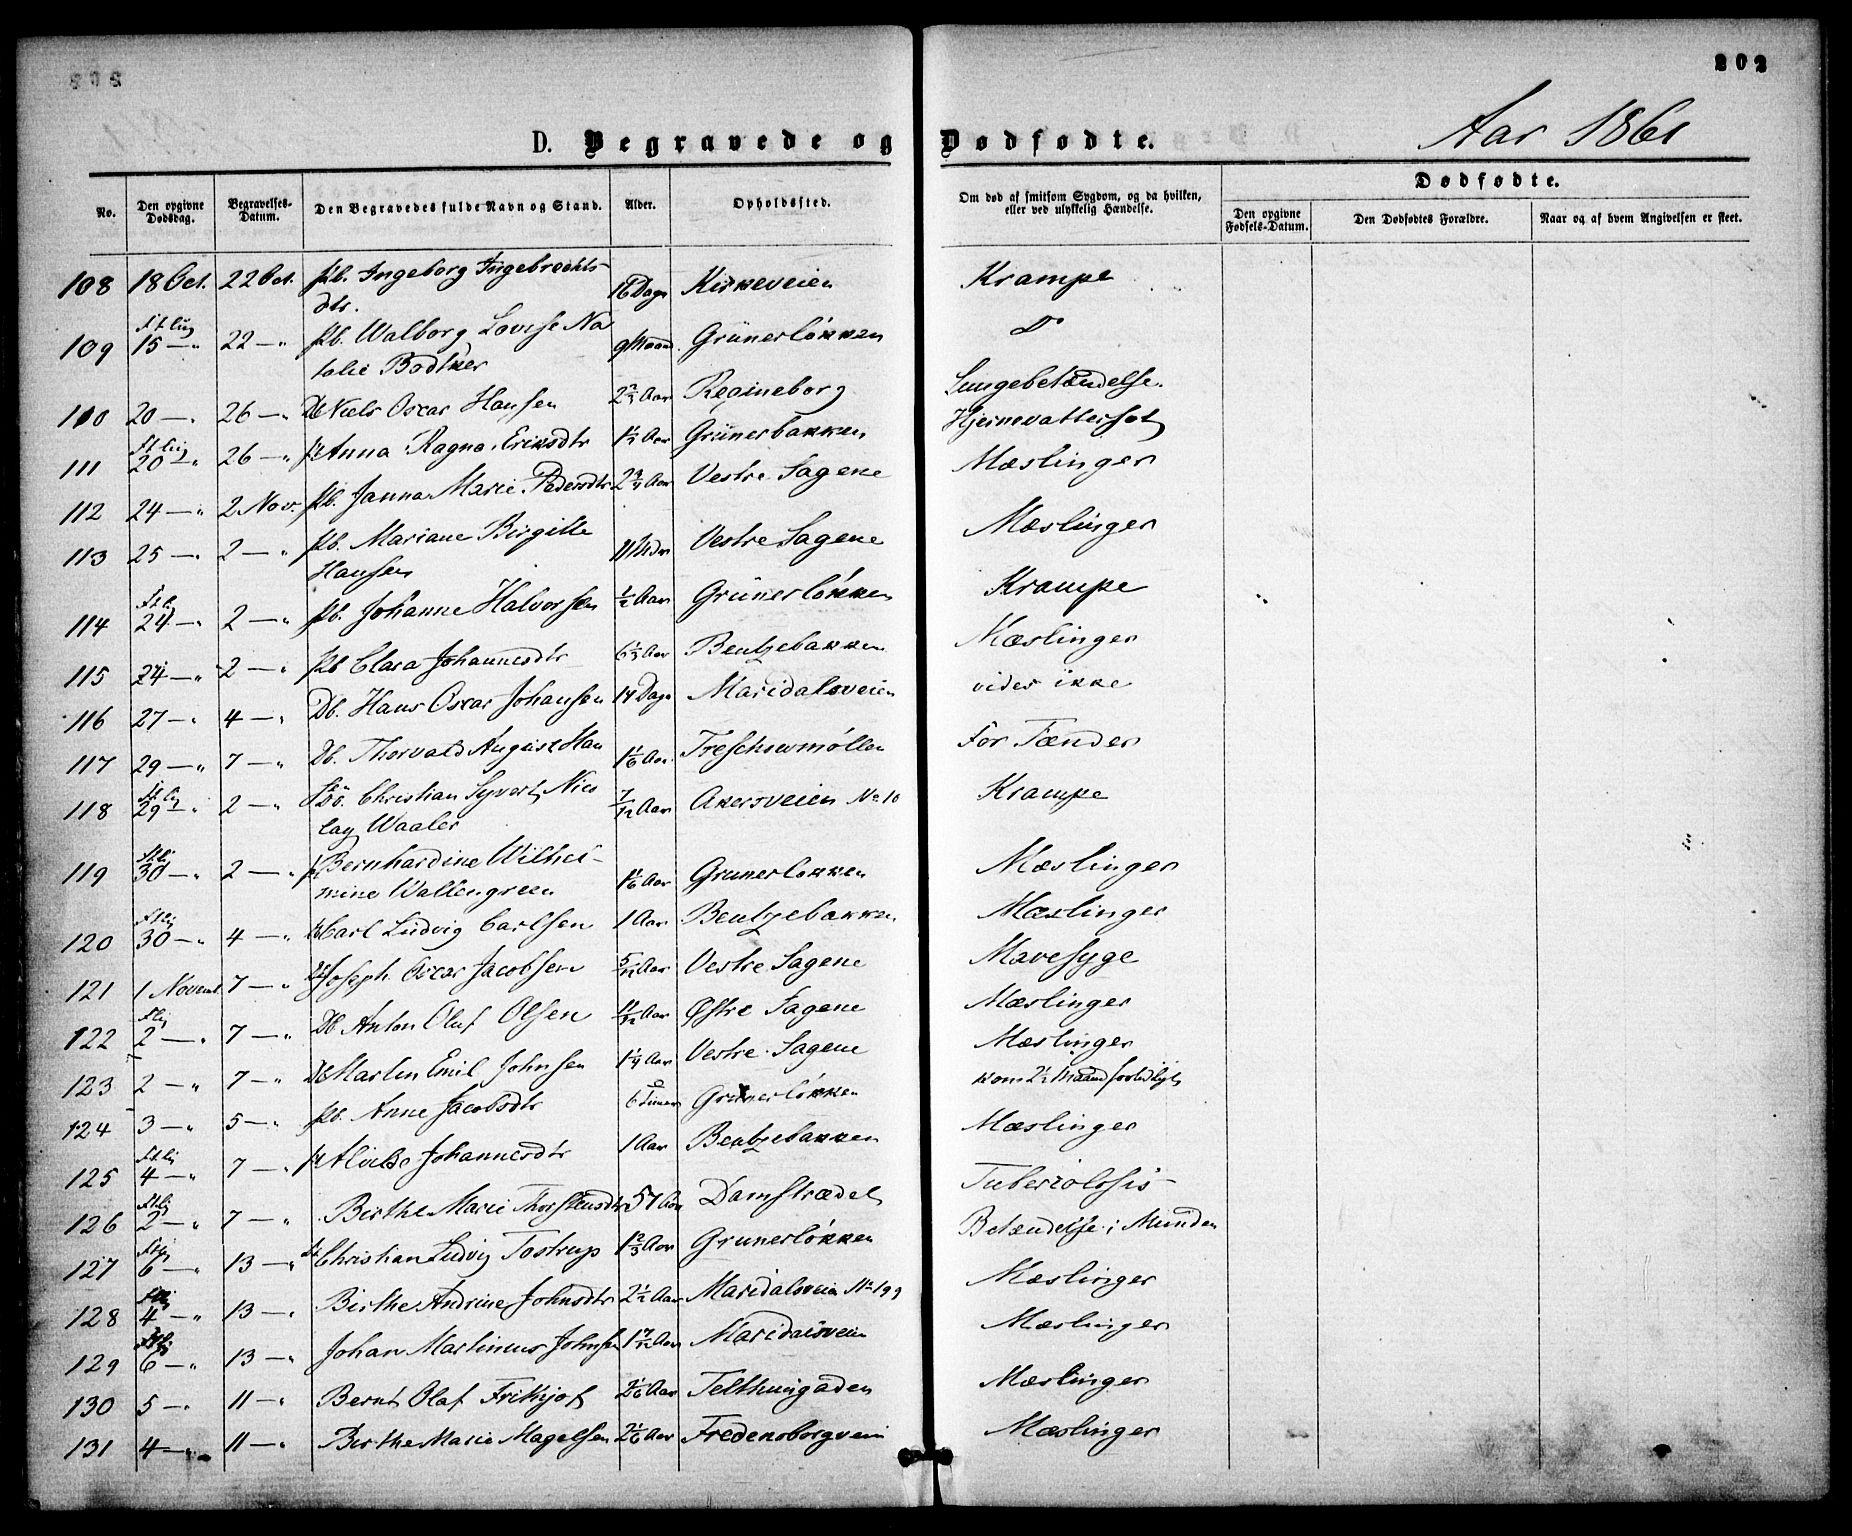 202
Aar 1861
D. Begravede og Dødfødte.
No.
Den opgivne Dødsdag.
Begravelses-Datum.
Den Begravedes fulde Navn og Stand.
Alder.
Opholdssted.
Om død af smitsom Sygdom, og da hvilken, eller ved ulykkelig Hændelse.
Dødfødte.
Den opgivne Fødsels-Datum.
Den Dødfødtes Forældre.
Naar og af hvem Angivelsen er skeet.
108 18 Oct. 22 Oct. Pb. Ingeborg Ingebrechts- 16 Dage Kirkeveien Krampe
dtr.
109 15 — " 22 — " Pb. Walborg Lovise Na Grünerløkken Do
talie Bødtker
110 20 — " 26 — " Niels Oscar Hansen Aar Regineborg Lungebetændelse.
111 20 — " 26 — " Anna Ragna Eriksdtr Aar Grünerbakken Hjernevattersot
112 24 — " 2 Nov. Pb. Janna Marie Pedersdtr 2 3/4 Aar Vestre Sagene Mæslinger
113 25 — " 2 — " Pb. Mariane Birgitte Vestre Sagene Mæslinger
Hansen
114 24 — " 2 — " Pb. Johanne Halvorsen 1/2 Aar Grünerløkken Krampe
115 24 — " 2 — " Pb Clara Johannesdtr Aar Bentzebakken Mæslinger
116 27 — " 4 — " Db. Hans Oscar Johansen 14 Dage Maridalsveien vides ikke
117 29 — " 7 — " Db. Thorvald August Han 1 1/6 Aar. Treschowmøllen For Tænder
118 29 — " 2 — " Christian Syvert Nico 7/12 Aar Akersveien No 10 Krampe
lay Waaler
119 30 — " 2 — " Bernhardine Wilhel- 1 1/6 Aar Grunerløkken Mæslinger
mine Wallengreen
120 30 — " 4 — " Carl Ludvig Carlsen 1 Aar Bentzebakken Mæslinger
121 1 Novemb 7 — " Joseph Oscar Jacobsen 5/12 Aar Vestre Sagene Mavesyge
122 2 — " 7 — " Db Anton Oluf Olsen 11/12 Aar Østre Sagene Mæslinger
123 2 — " 7 — " Martin Emil Johnsen 1 1/4 Aar Vestre Sagene Mæslinger
124 3 — " 5 — " Pb. Anne Jacobsdtr 6 Timer Grünerløkken kom 2 1/2 Maaned for tidligt
125 4 — " 7 — " Johannesdtr 1 Aar Bentzebakken Mæslinger
126 2 — " 7 — " Birthe Marie Thorstensdtr 57 Aar Damstrædet Tuberculosis
127 6 — " 13 — " Christian Ludvig Tostrup 1 2/3 Aar Grunerløkken Betændelse i Munden
128 4 — " 13 — " Birthe Andrine Johnsdtr 2 1/2 Aar Maridalsveien No 199 Mæslinger
129 6 — " 13 — " Johan Martinius Johnsen 1 7/12 Aar Maridalsveien Mæslinger
130 5 — " 11 — " Bernt Olaf Frithjof Aar Telthusgaden Mæslinger
131 4 — " 11 — " Birthe Marie Magelsen 2 1/6 Aar Fredensborgveien Mæslinger